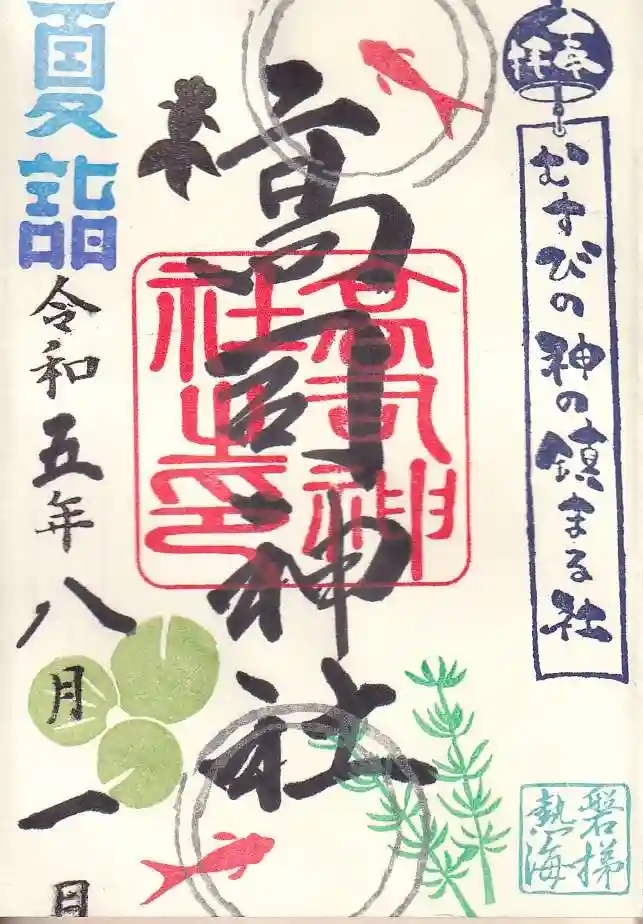 奉拝
むすびの神の鎮まる社
高司神社
高司神社之印
夏詣
令和五年八月一日
磐梯熱海